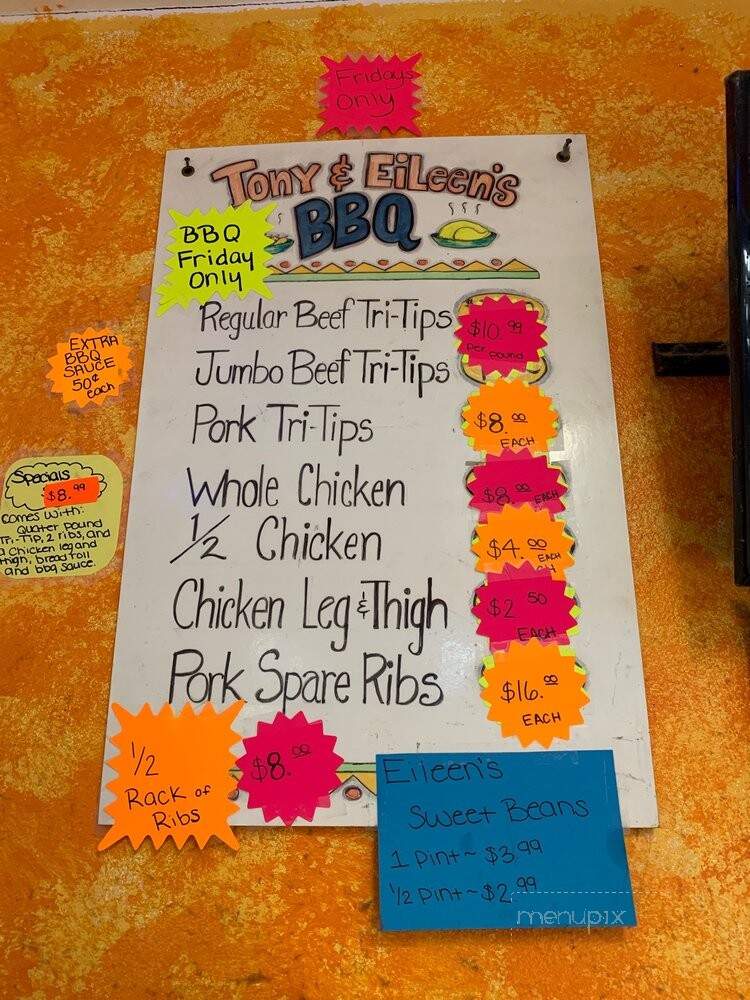 Fridays
Only
Tony & Eileen's
BBQ
BBQ
Friday
Only
Regular Beef Tri-Tips
$10.99
per pound
Jumbo Beef Tri-Tips
Pork Tri-Tips
$8.00
EACH
Whole Chicken
$8.00 EACH
1/2 Chicken
$4.00 EACH
CH
Chicken Leg & Thigh
$2 50
EACH
Pork Spare Ribs
$16.00
EACH
EXTRA
BBQ
SAUCE
50¢
each
Specials
$8.99
comes with:
Quater pound
Tri-Tip, 2 ribs, and
a chicken leg and
thigh, bread roll
and bbq sauce.
1/2
Rack of
Ribs
$8.00
Eileen's
Sweet Beans
1 Pint~$3.99
1/2 Pint~$2.99
menupix